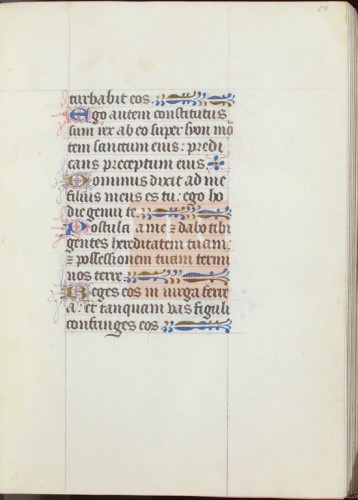 turbabit eos.
Ego autem constitutus
sum rex ab eo super syon mō
tem sanctum eius: predi
cans preceptum eius.
Dominus dixit ad me
filius meus es tu: ego ho
die genui te.
Postula a me ⁊ dabo tibi
gentes hereditatem tuam:
⁊ possessionem tuam termi
nos terre.
Reges eos in uirga ferre
a: et tanquam uas figuli
confringes eos